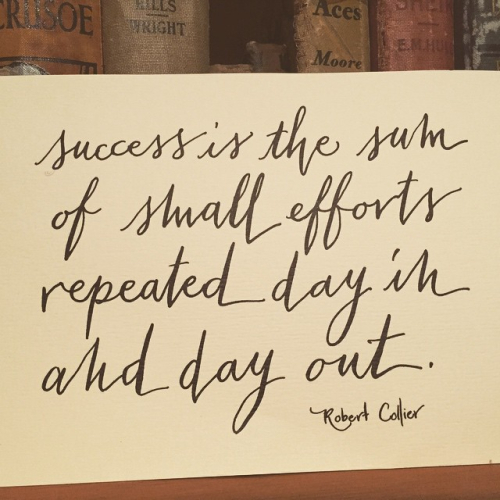 CRUSOE
HILLS
WRIGHT
Aces
Moore
success is the sum
of small efforts
repeated day in
and day out.
Robert Collier